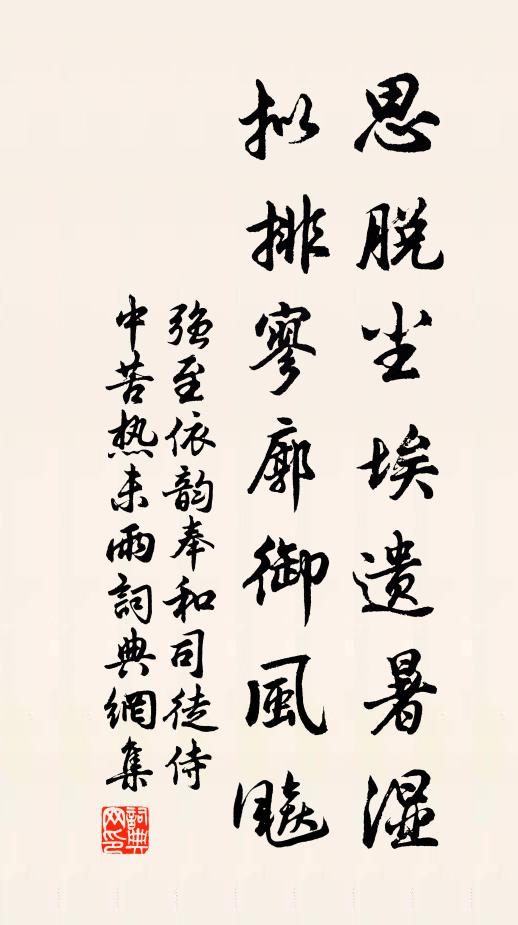 思脱尘埃遗暑湿
拟排寥廓御風飈
强至依韵奉和司徒侍
中苦热未雨詞典網集
詞典
网印